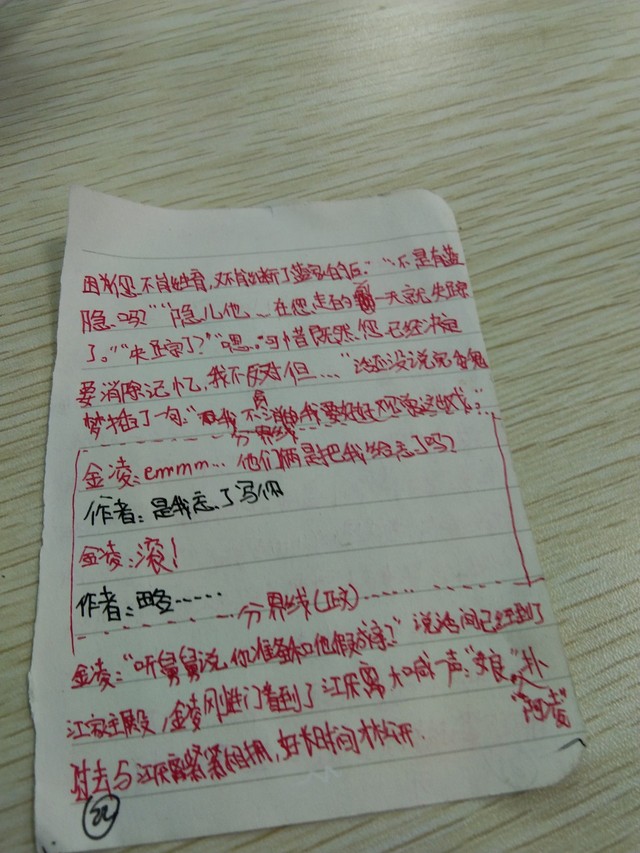 因为您不肯姓育，如不肯断了蓝家的后。""不是有蓝
隐吗""隐儿他～在您走的一天就失踪
了。""失踪了？""嗯，可惜既然您已经决定
要消除记忆，我不反对但…"话还没说完金鬼
梦插了句："我不
分界线
金凌：emmm…他们俩是把我给忘了吗？
作者：是我忘了写你
金凌：滚！
作者：略……
分界线(正文)
金凌："听舅舅说，你准备和他假成亲？"说话间已经到了
江家主殿，金凌刚进门看到了江厌离大喊一声："娘"扑
"阿凌"
过去与江厌离紧紧相拥，好长时间才松开.
22